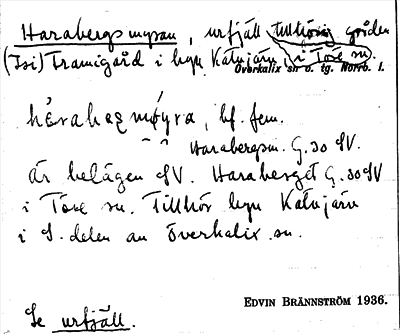 Harabergsmyran, urfjäll tillhörig gården
(Isi) Framigård i byn Katujärv, i Töre sn.
Överkalix sn o. tg. Norrb. l.
bf. fem.
Harabergsm. G. 30 SV.
är belägen SV. Haraberget G. 30 SV
i Töre sn. Tillhör byn Katujärv
i S. delen av Överkalix sn.
EDVIN BRÄNNSTRÖM 1936.
Se urfjäll.